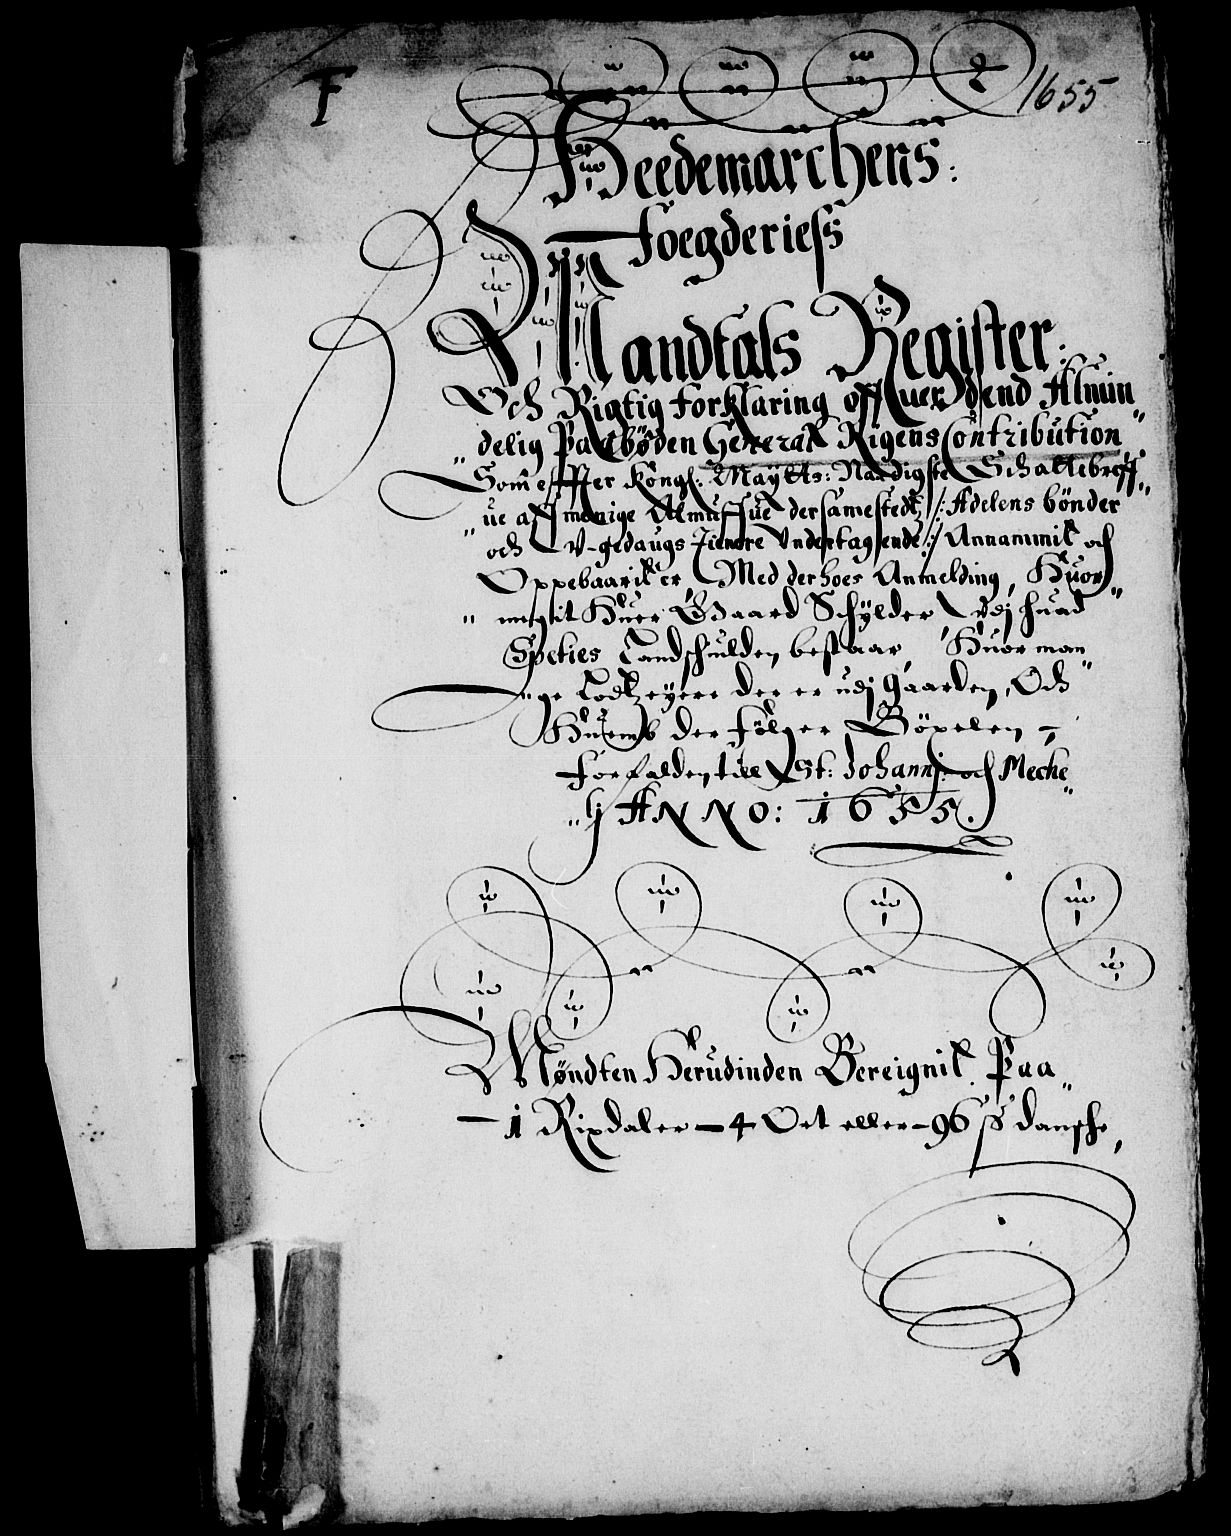 F
1655
Heedemarchens:
Foegderiess
Mandtals Register:
Och Rigtig Forklaring offuer dend Almin
delig Paabøden General Rigens Contribution
Som effter Kongl: Maytts: Naadigste Schattebreff
ue aff menige Almuffue dersamestedtz /: Adelens bønder
och V-gedaugs Tienere Undertagende :/ Annammit och
Oppebaarit er Med derhoes Anmelding, Huor
megit Huer Gaard Schylder Vdj huad
Speties Landschulden bestaar, Huor man
ge Lodtzeyere der er udj Gaarden, Och
Huemb der følger Böxelen
Forfalden till St: Johannj: och Meche
lj ANNO: 1655.
Møndten Herudinden Bereignit Paa
1 Rixdaler 4 Ort eller 96 ß dansche,